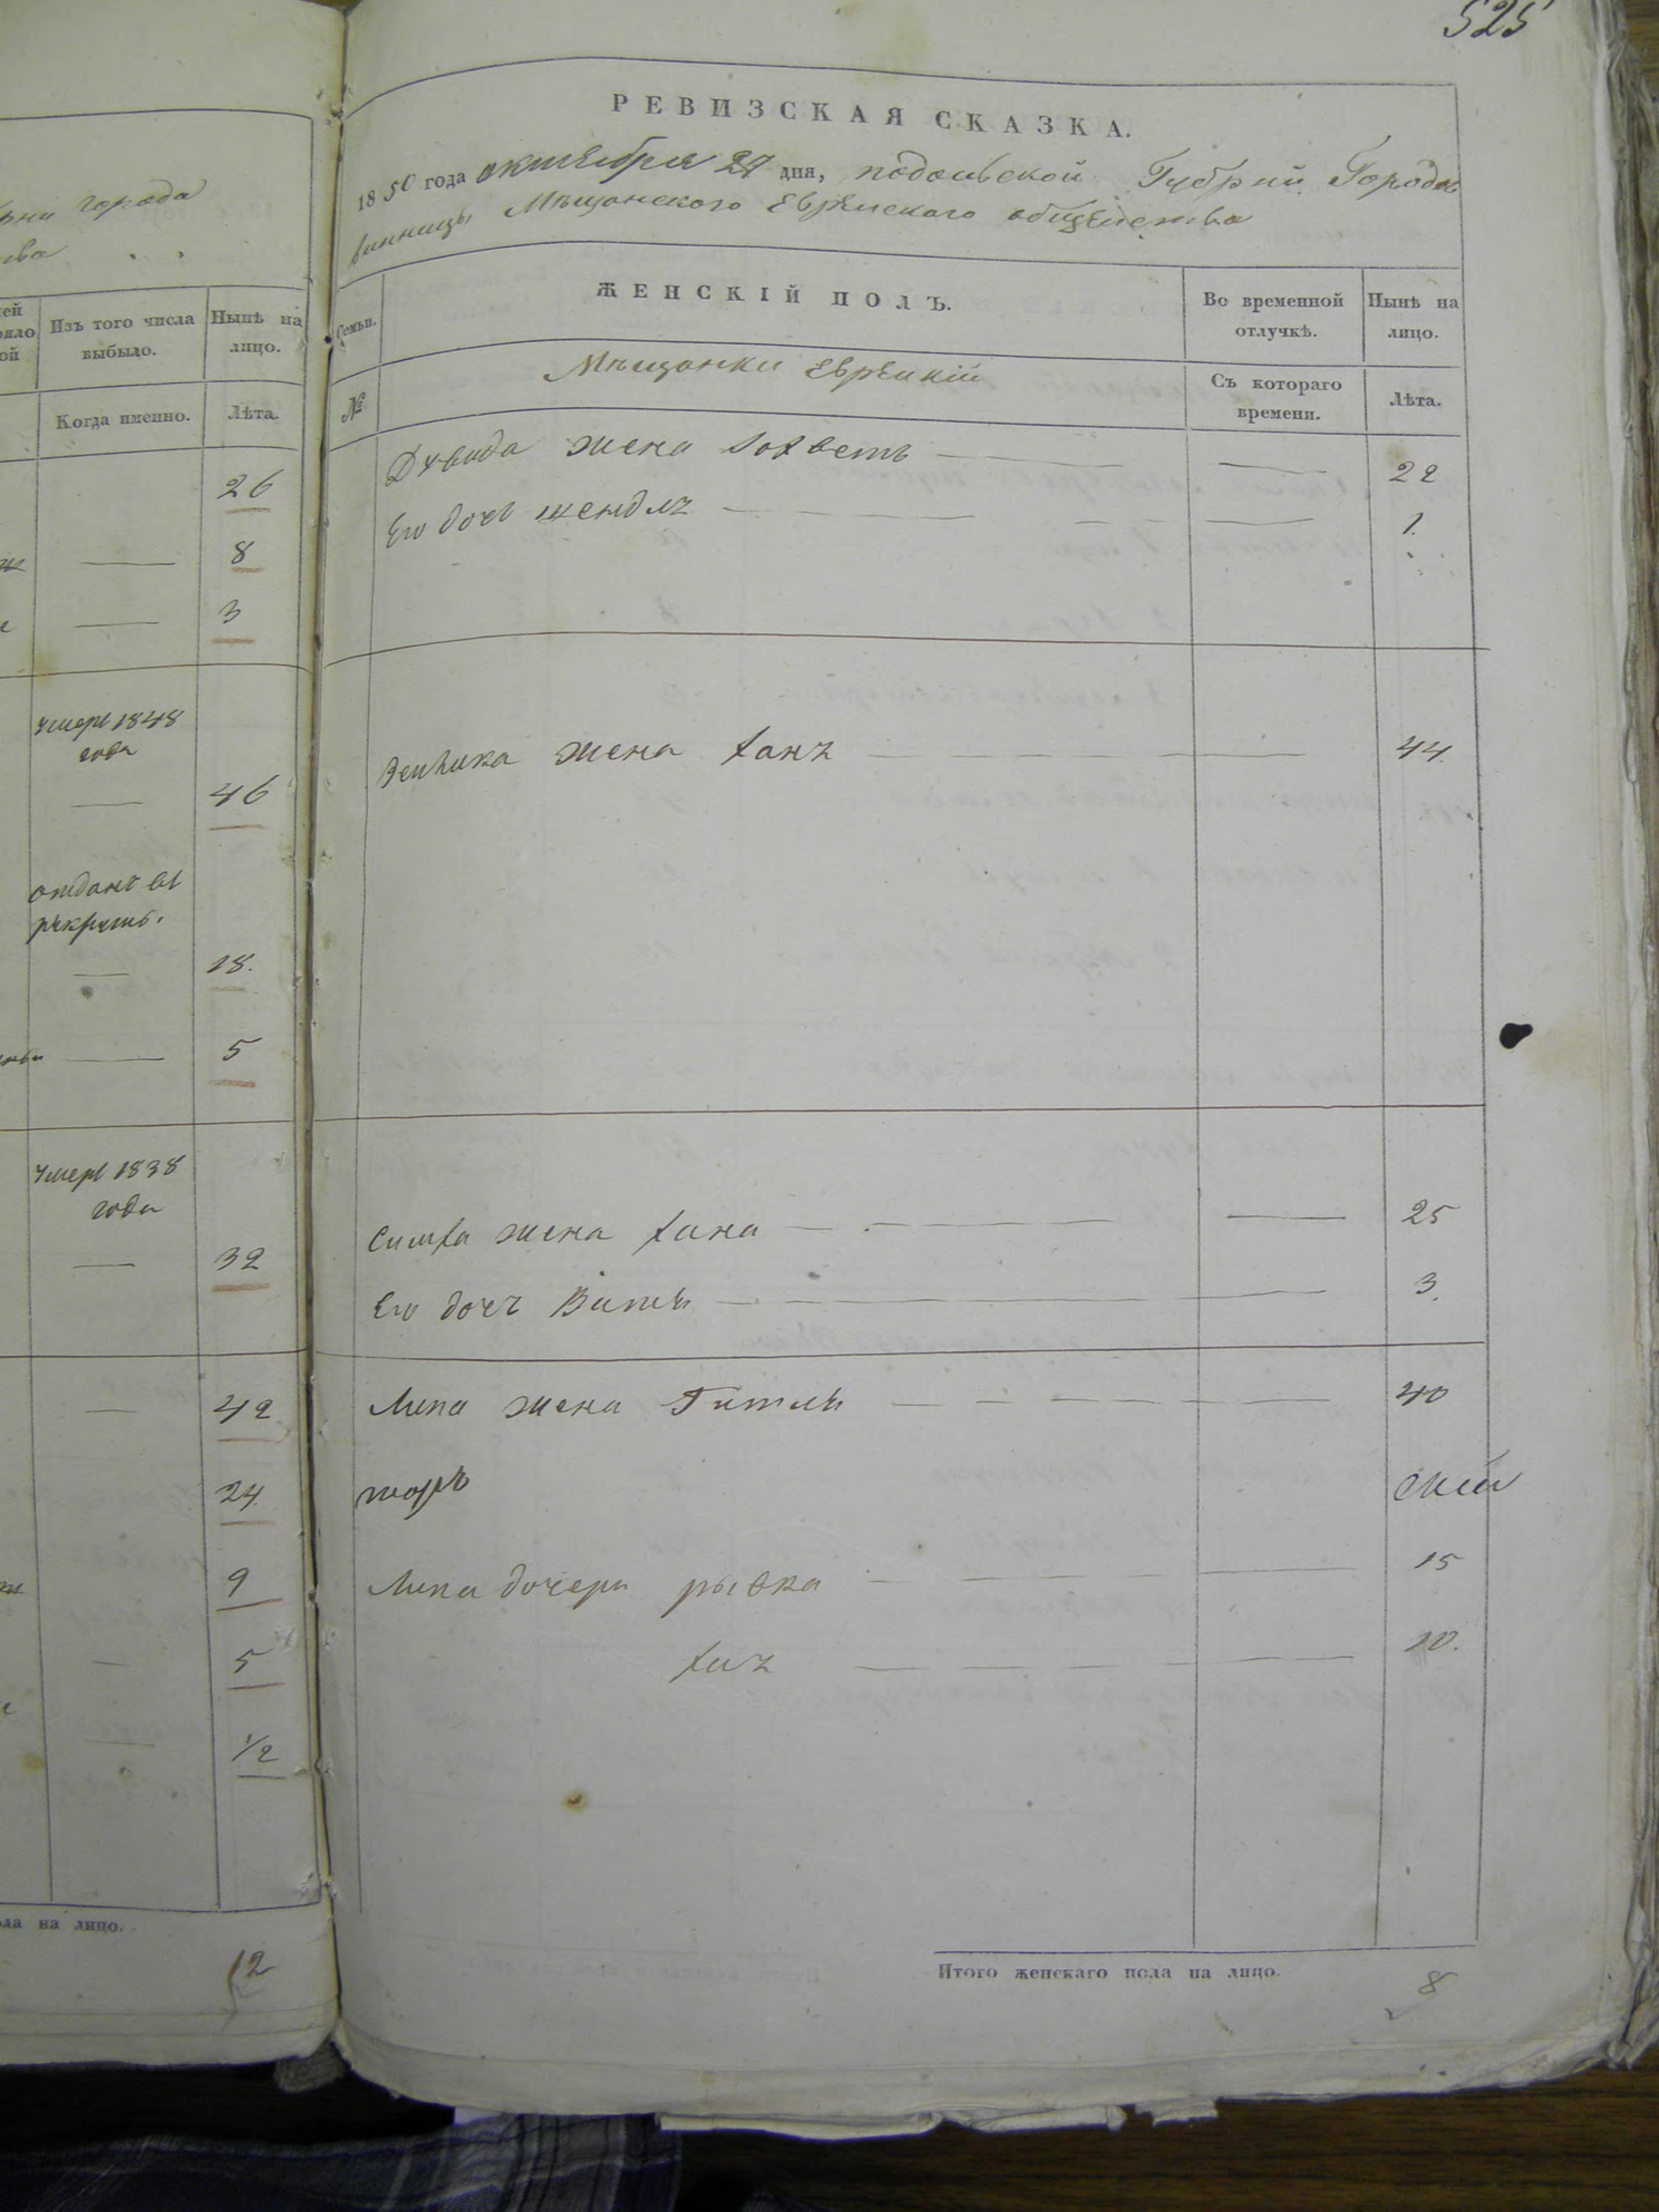 рни города
ва
ей
яло
ой
Изъ того числа выбыло.
Нынѣ на лицо.
Когда именно.
Лѣта.
26
8
3
умеръ 1848
года
46
отданъ въ
рекруты.
18.
5
умеръ 1838
года
32
42
24
9
5
1/2
ла на лицо.
12
525
РЕВИЗСКАЯ СКАЗКА.
1850 года октября 27 дня, подольской Губрнии Города
винницы Мѣщанского Еврейского общества
Семьи.
ЖЕНСКІЙ ПОЛЪ.
Во временной отлучкѣ.
Нынѣ на лицо.
№
Мѣщанки Еврейкій
Съ котораго времени.
Лѣта.
Дувида жена 22
Его дочь шендлъ 1.
жена ханъ 44.
Симха жена хана 25
Его дочъ 3.
Липа жена Гитлъ 40
Липа дочери рывка 15
10.
Итого женскаго пола на лицо.
8